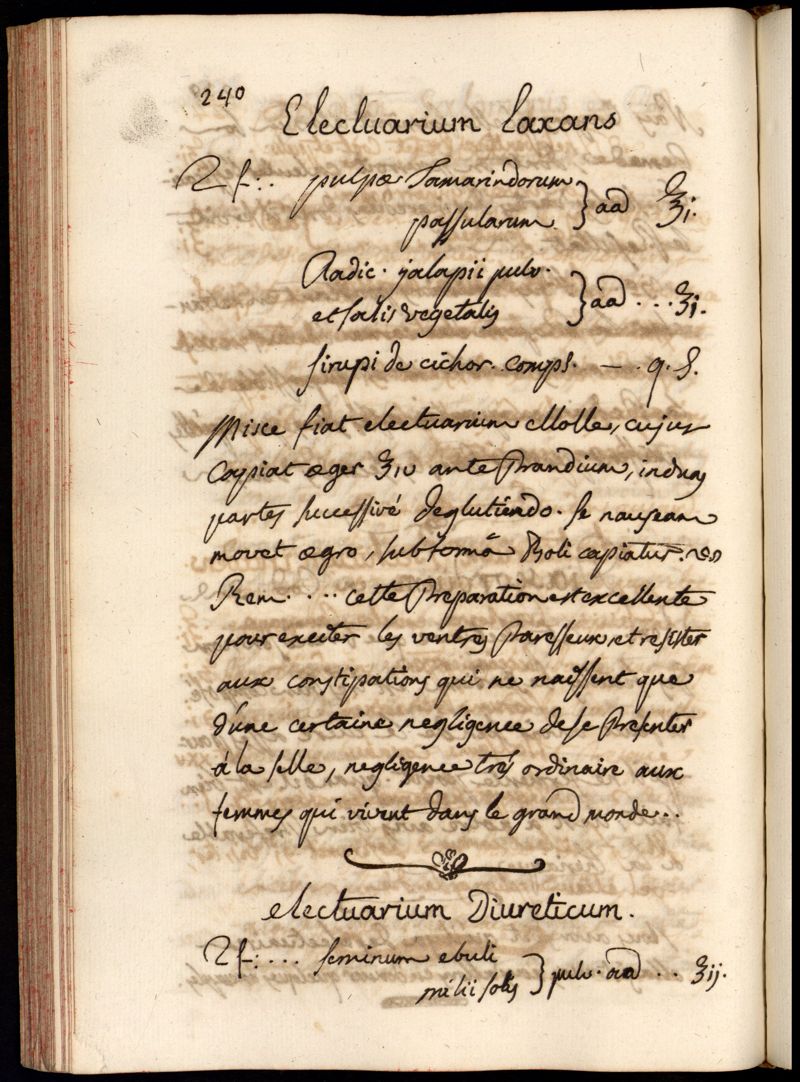 240
Electuarium Laxans
♃ f: . pulpæ Tamarindorum
passularum } aā ℥i.
Radic. jalapii pulv.
et salis vegetalis } aā . . . ʒi.
sirupi de cichor. comps. — . q. S.
Misce fiat electuarium Molle, cujus
Capiat æger ʒiv ante Prandium, in duas
partes successivé deglutiendo. se nauseam
movet ægro, sub formâ Boli capiatur.
Rem. . . . cette Preparation est excellente
pour exciter les ventres Paresseux, et resister
aux constipations qui ne naissent que
d'une certaine negligence de se Presenter
á la selle, negligence trés ordinaire aux
femmes qui vivent dans le grand monde . .
electuarium Diureticum.
♃ f: . . . seminum ebuli
milii solis } pulv. aā . . ʒij.